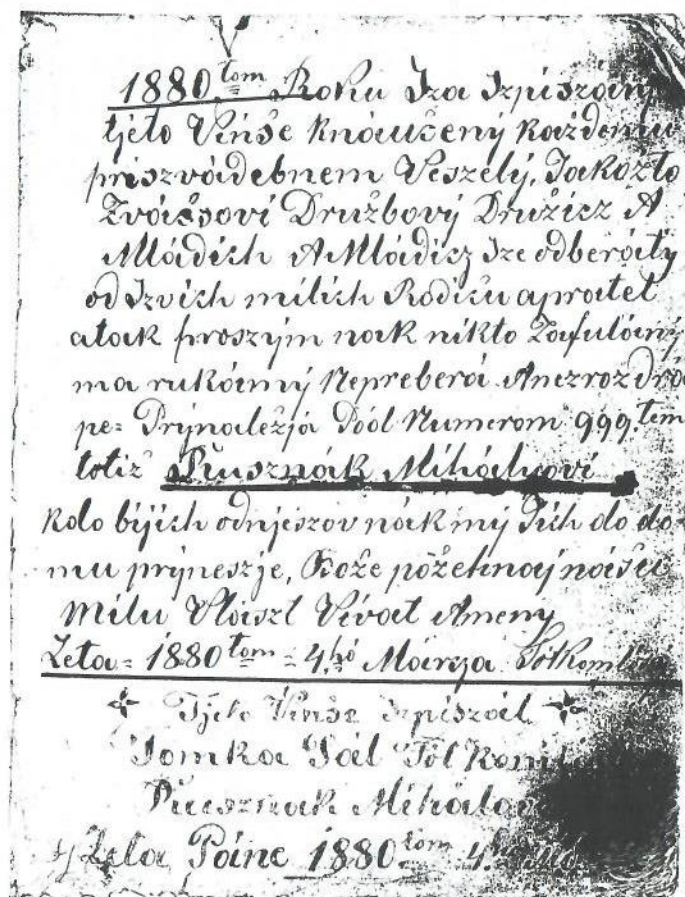 1880.tom Roku Sza Szpiszány
tjeto Vinše knáušený každemu
priszvádebnem Veszelý, Jakožto
Zváčsovi Družbový Družicz A
Mládich A Mládicz Sze odberáty
od Szvich milich Rodiču apratel
atak proszým nak nikto
ma rukámý Nepreberá Anezrozdrá
pe= Prýnaležjá Poód Numerom 999.tem
totiz Plusznák Mihályovi
kolo bijich odnjeszov nák mý Jich do do-
mu prýneszje, Bože požehnaj nášu
Milu Vlászt Vivat Ameny
Leta = 1880 tom = 4.hó Márcza
Tjeto Vinše Szpiszál
Tomka Pál Tót
Mihályov
Leta Páne 1880.tom